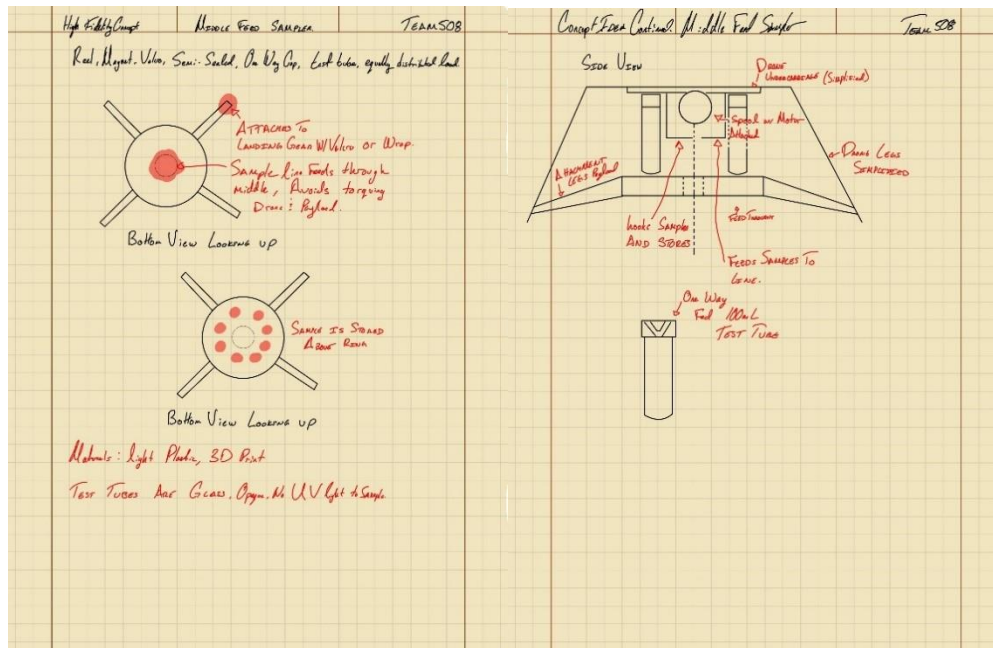 High Fidelity Concept MIDDLE FEED SAMPLER TEAM 508
Reel, Magnet-Valve, Semi-Sealed, One Way Cap, equally distributed load
ATTACHED TO
LANDING GEAR W/ Velcro or Wrap.
Sample line Feeds through
middle, Avoids torquing
Drone & Payload.
Bottom View Looking up
SAMPLE IS STORED
ABOVE RING
Bottom View Looking up
Materials: light Plastic, 3D Print
TEST TUBES ARE GLASS, No UV light to Sample
Concept Idea Continued: Middle Feed Sampler TEAM 508
SIDE VIEW
DRONE
UNDERCARRIAGE (Simplified)
Spool w/ Motor
Attached
DRONE LEGS
SIMPLIFIED
ATTACHMENT
LEGS Payload
FEED THROUGH
hooks Samples
AND STORES
FEEDS SAMPLES TO
LINE.
One Way
Feed 100mL
TEST TUBE